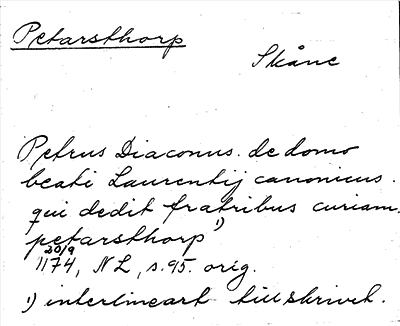 Petarsthorp
Skåne
Petrus Diaconus. de domo
beati Laurentij canonicus.
qui dedit fratribus curiam.
petarsthorp 1)
20/9
1174, NL, s.95. orig.
1) interlineart tillskrivet.